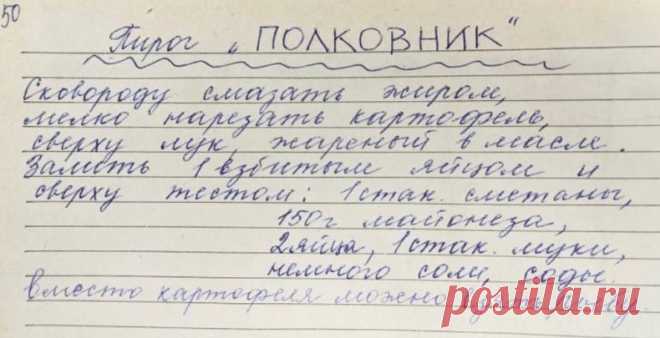 50
Пирог „ПОЛКОВНИК“
Сковороду смазать жиром,
мелко нарезать картофель,
сверху лук, жареный в масле.
Залить 1 взбитым яйцом и
сверху тестом: 1 стак. сметаны,
150 г майонеза,
2 яйца, 1 стак. муки,
немного соли, соды.
вместо картофеля можно
postila.ru